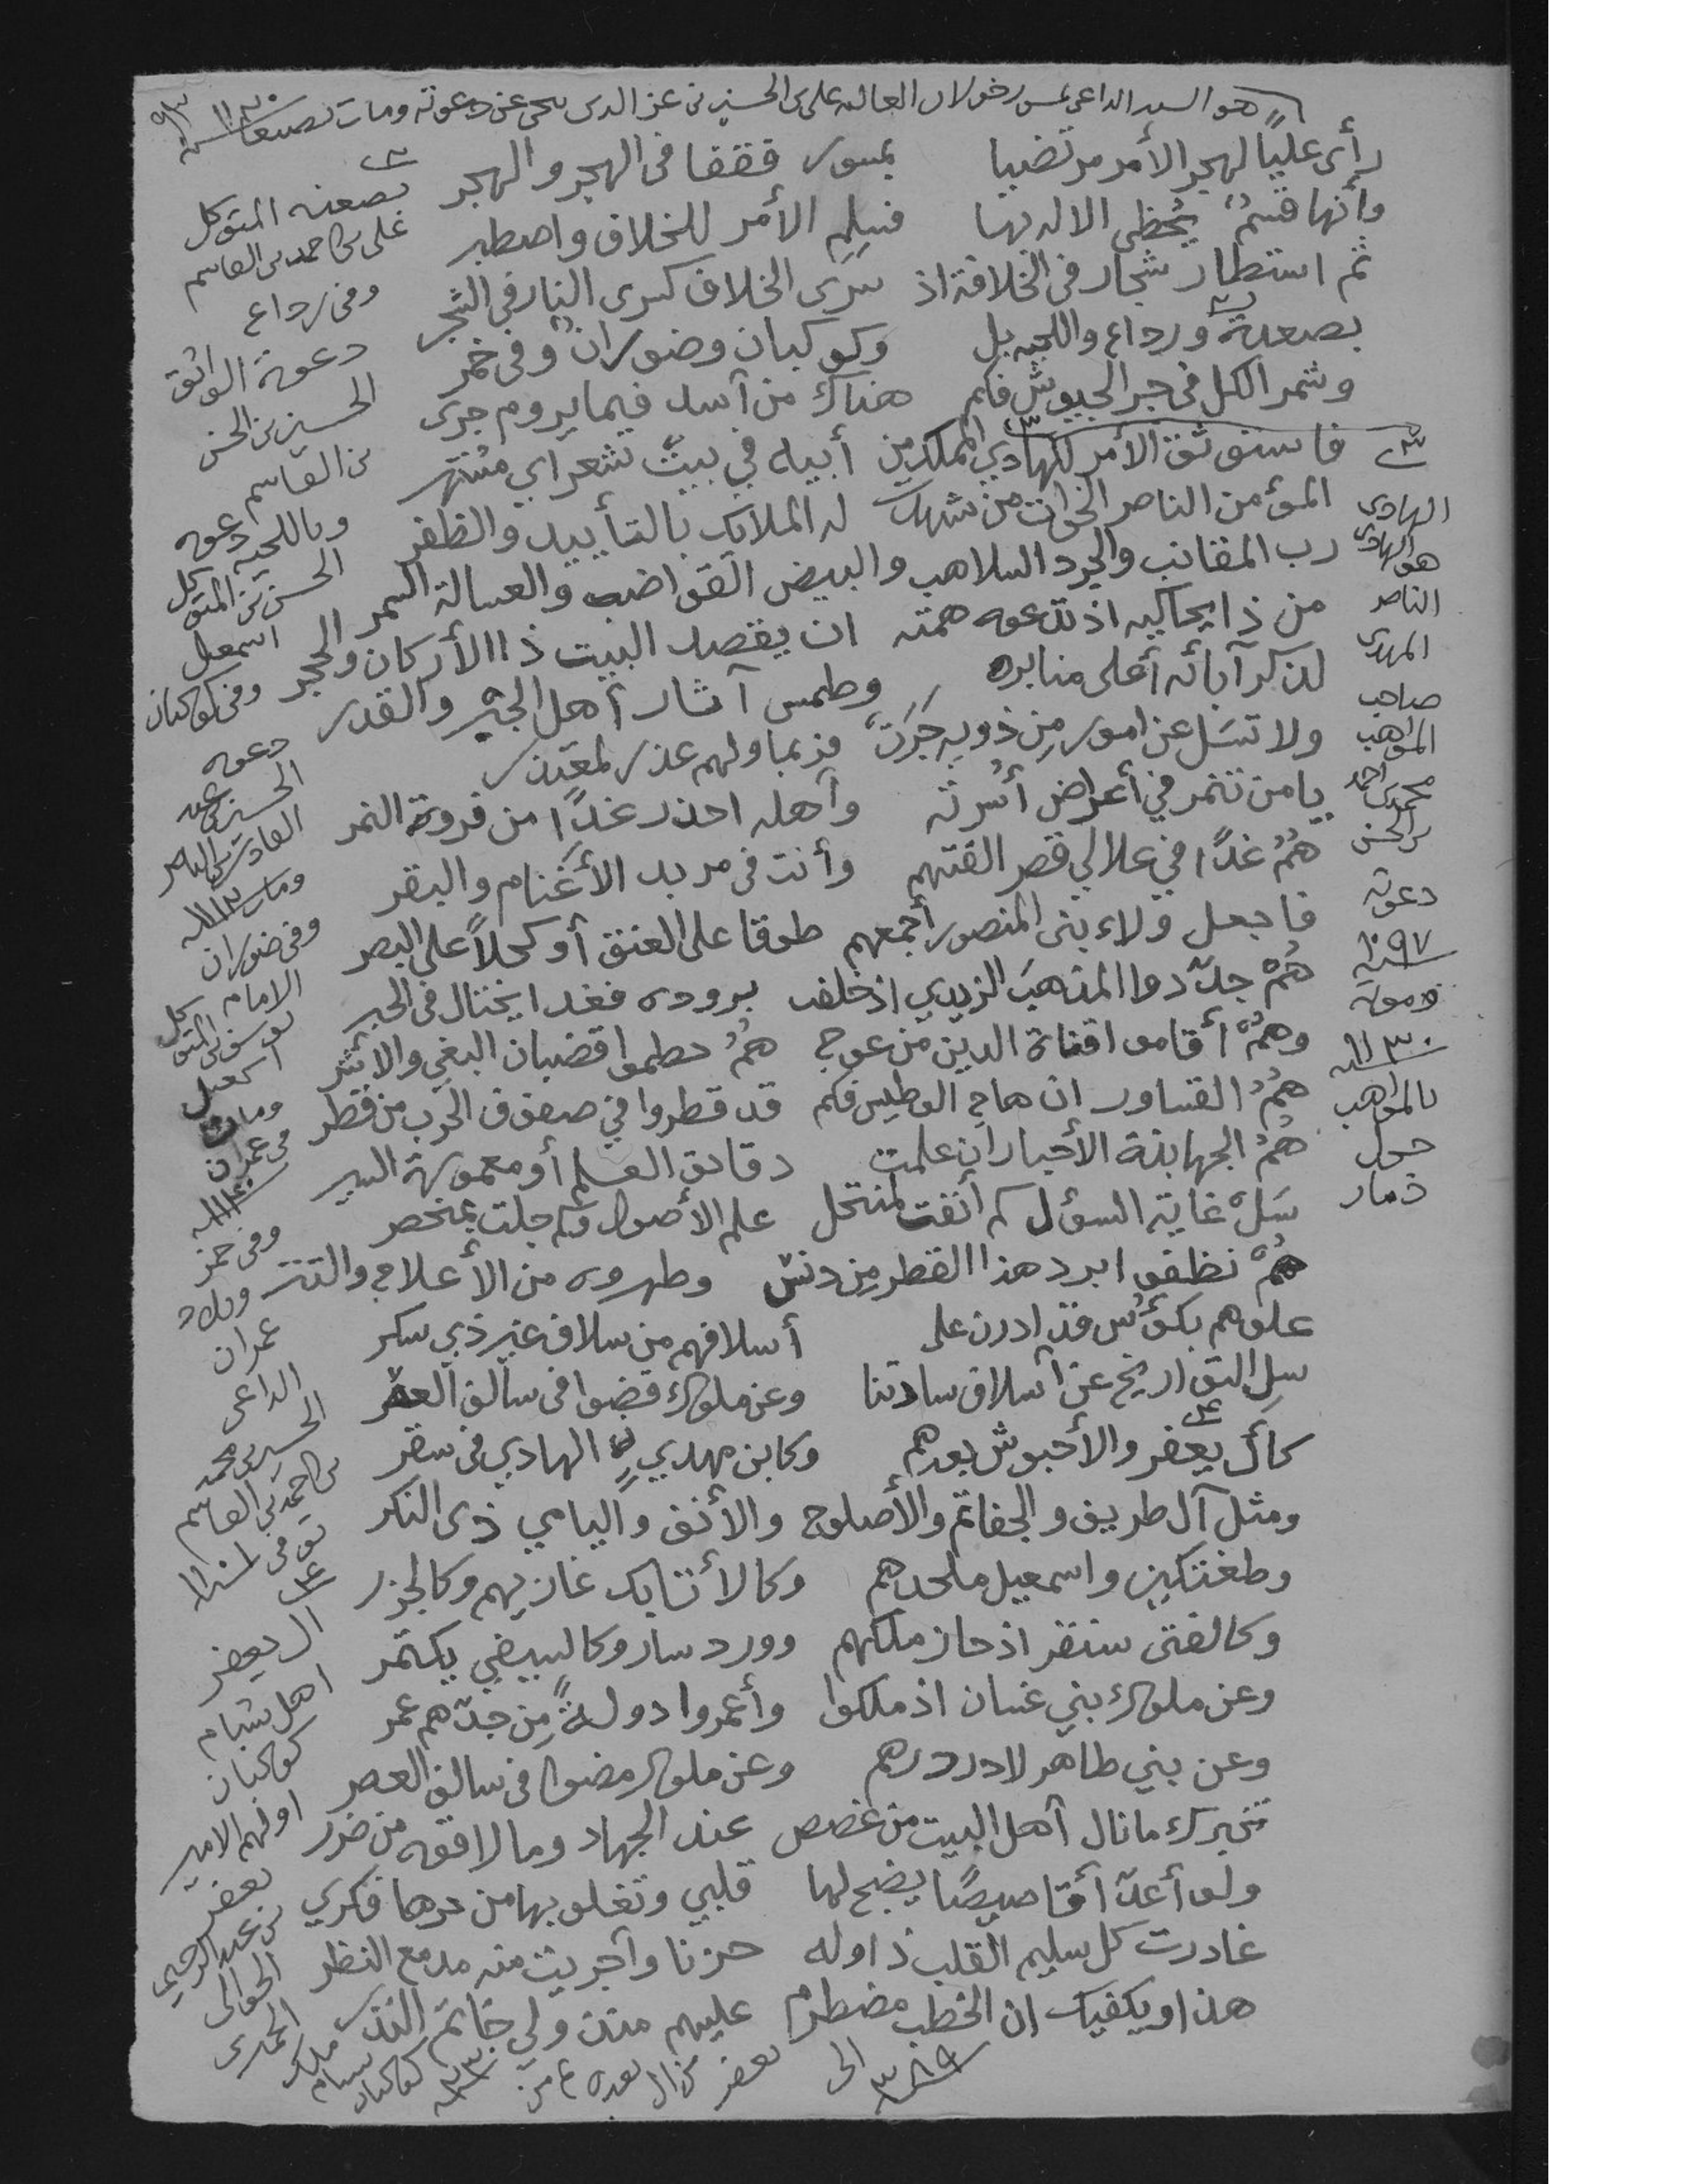 هو السيد الداعي بمسور خولان العالية علي بن الحسين بن عز الدين تنحى عن دعوته ومات بصنعا سنة ١١٣٠
رأى عليًا لهجر الأمر مرتضيا بمسور فقفا في الهجر والهجر
وأنها قسمٌ يُحظي الاله بها فسلم الأمر للخلاق واصطبر
ثم استطار شجار في الخلافة اذ سَرَى الخلاف كسرى النار في الشجر
بصعدة ورداع واللحيه بل وكوكبان وضوران وفي خمر
وشمر الكل في جر الجيوش فكم هناك من آسد فيما يروم جرى
فاستوثق الأمر للهادي المملك من أبيه في بيت شعر اي مشتهر
المؤمن الناصر الخوات من شهدت له الملايك بالتأييد والظفر
رب المقانب والجرد السلاهب والبيض القواضب والعسالة السمر
من ذا يحاكيه اذ تدعوه همته ان يقصد البيت ذا الأركان والحجر
لذكر آبائه أعلى منابره وطمس آثار أهل الجبر والقدر
ولا تسَل عن امور مِن ذويه جَرَتْ فربما ولهم عذر لمعتذر
يا من تنمر في أعراض أُسرته وأهله احذر غدًا من فروة النمر
همُ غدًا في علالي قصر القتهم وأنت في مربد الأغنام والبقر
فاجعل ولاء بني المنصور أجمعهم طوقا على العنق أو كحلاً على البصر
هُمْ جدّدوا المذهبَ الزيدي اذ خلقت بروده فغدا يختال في الحبر
وهمُ أقاموا قناة الدين من عوج همُ حطموا قضبان البغي والاشر
هُمُ القساور ان هاج الوطيس فكم قد قطروا في صفوف الحرب من قطر
هُمُ الجهابذة الأحبار ان علمت دقايق العلم أو معمورة السير
سَلْ غاية السؤل كم أنفت لمنتحل علم الأصول وكم جلت بمختصر
همْ نظفوا برد هذا القطر مِن دنس وطهروه من الأعلاج والتتر
علوهم بكؤُس قد ادرن على أسلافهم من سلاف غير ذي سكر
سِل التواريخ عن أسلاف سادتنا وعن ملوك قضوا في سالف العصر
كآل يعفر والأحبوش بعدهم وكابن مهدي الهادي في سقر
ومثل آل طريف والجفاتم والأصلوح والأنف واليامي ذي النكر
وطغتكين واسمعيل ملحدهم وكالأتابك غازيهم وكالجزر
وكالفتى سنقر اذ حاز ملكهم وورد سار وكالبيضي بكتمر
وعن ملوك بني غسان اذ ملكوا وأعمروا دولةً مِن جدّهم عمر
وعن بني طاهر لا در درهم وعن ملوك مضوا في سالف العصر
تخبرك ما نال أهل البيت من غصص عند الجهاد وما لاقوه من ضرر
ولو أعدّ أقاصيصًا يضج لها قلبي وتغلو بها من حرها فكري
غادرت كل سليم القلب ذا وله حزنا وأجريت منه مدمع النظر
هذا ويكفيك ان الخطب مضطرم عليهم مذ ولي خاتم النذر
بصعده المتوكل
علي بن احمد بن القاسم
وفي رداع
دعوة الواثق
الحسين بن الحسن
بن القاسم
وباللحيه دعوه
الحسن بن المتوكل
اسمعيل
وفي كوكبان
دعوه
الحسين بن عبد
القادر بن الناصر
ومات ١١١٢
وفي ضوران
الامام
يوسف بن المتوكل
اسمعيل
ومات
في عمران
وفي خمر
وبلاد
عمران
الداعي
الحسين بن محمد
بن احمد بن القاسم
توفي
ال يعفر
اهل شبام
كوكبان
اولهم الامير
يعفر
بن عبد الرحيم
الحوالي
الحميري
ملك
شبام
كوكبان
الى ٣٨٩
الهادي
هو الهادي
الناصر
المهدي
صاحب
المواهب
محمد بن احمد
بن الحسن
دعوته
١٠٩٧
وموته
١١٣٠
بالمواهب
حول
ذمار